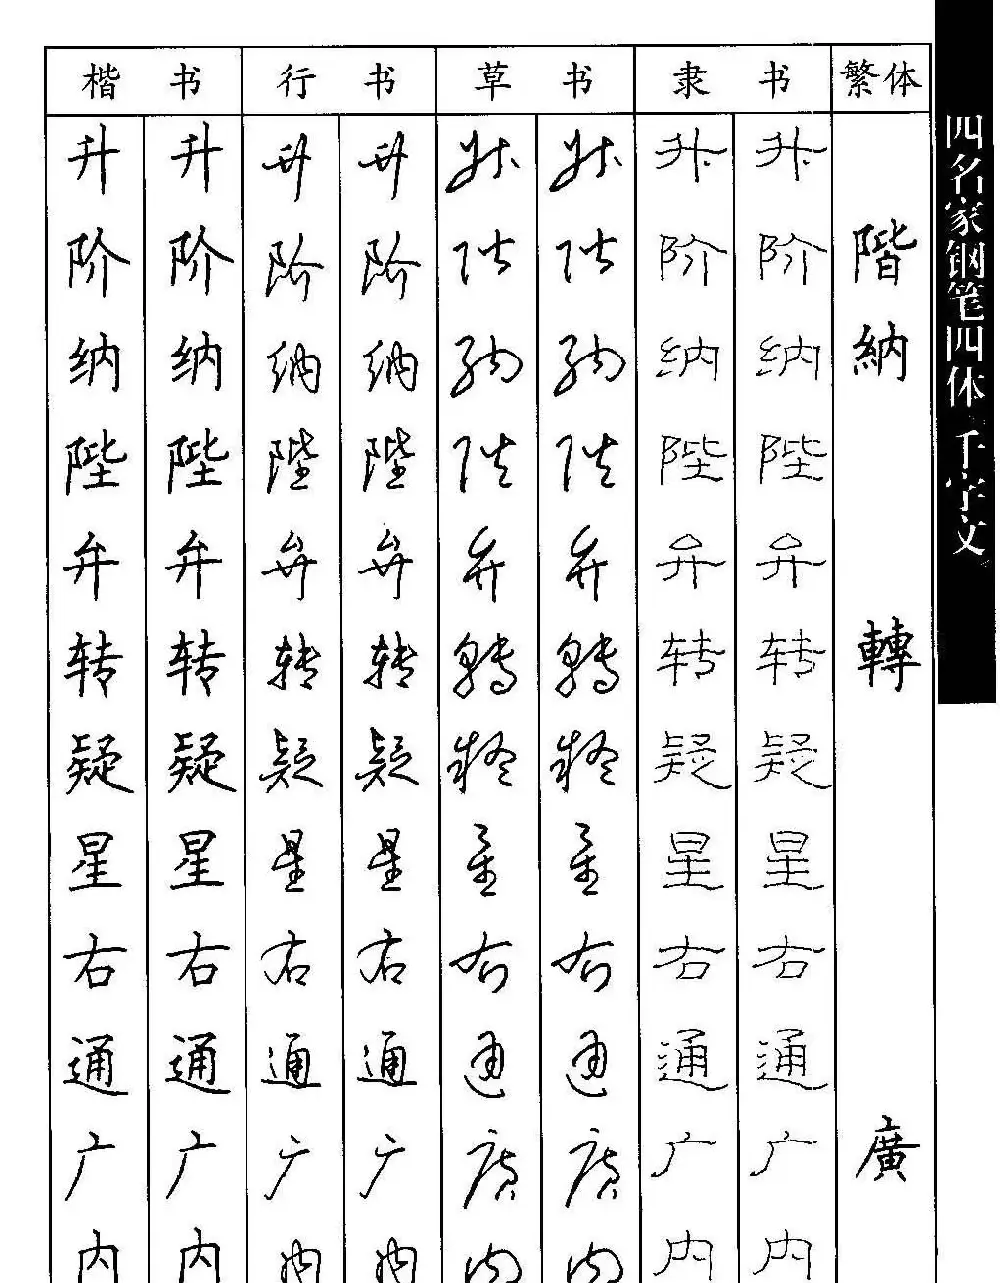 楷书 行书 草书 隶书 繁体
升 升 升 升 升 升 升 升
阶 阶 阶 阶 阶 阶 阶 阶 階
纳 纳 纳 纳 纳 纳 纳 纳 納
陛 陛 陛 陛 陛 陛 陛 陛
弁 弁 弁 弁 弁 弁 弁 弁
转 转 转 转 轉 轉 转 转 轉
疑 疑 疑 疑 疑 疑 疑 疑
星 星 星 星 星 星 星 星
右 右 右 右 右 右 右 右
通 通 通 通 通 通 通 通
广 广 广 广 廣 廣 广 广 廣
内 内 内 内 内 内 内 内
四名家钢笔四体千字文